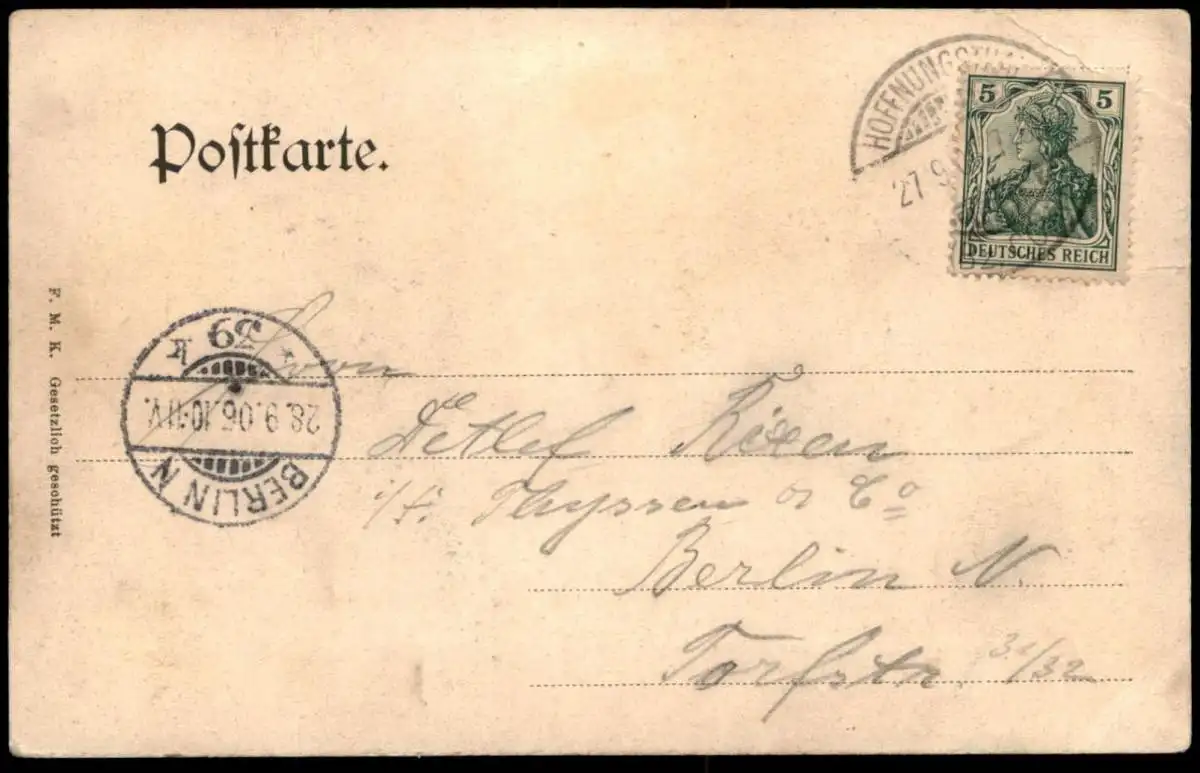 Postkarte.
HOFFNUNGSTHAL
27 9
5 5
DEUTSCHES REICH
F. M. K. Gesetzlich geschützt
BERLIN N
28.9.06.10-11V.
Herrn
Detlef Rixen
i/f. Thyssen & Co
Berlin N.
Torfstr. 31/32